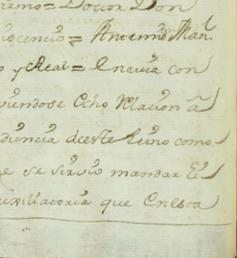 ramo = Doctor Don
nocencio = Antemi Man.l
o y Real = Enevia con
niendose Echo Relacion â
diencia deeste Reino como
e se sirvio mandar
uxiliatoria que en esta